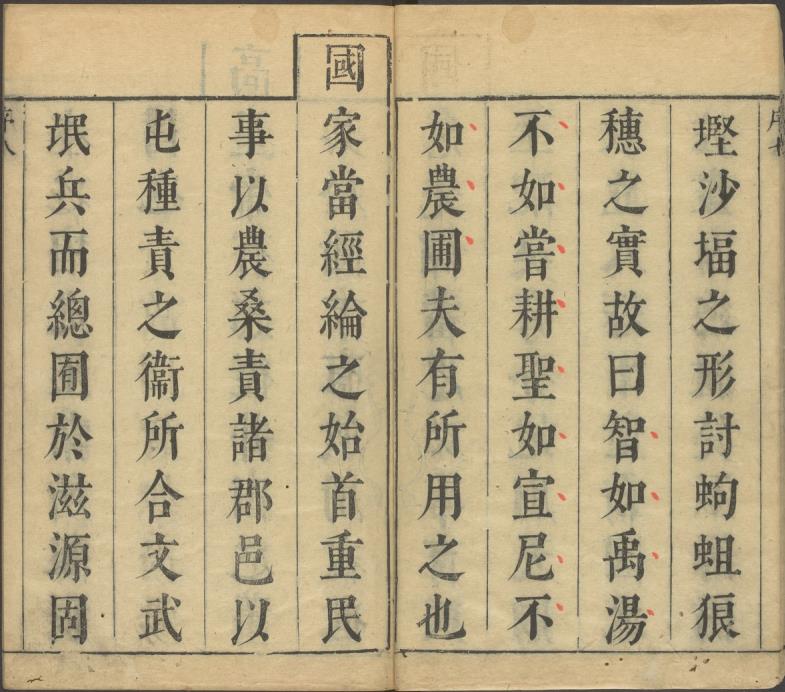 墾沙堛之形討蚼蛆狼
穗之實故曰智如禹湯
不如嘗耕聖如宣尼不
如農圃夫有所用之也
國家當經綸之始首重民
事以農桑責諸郡邑以
屯種責之衞所合文武
垊兵而總囿於滋源固
序八